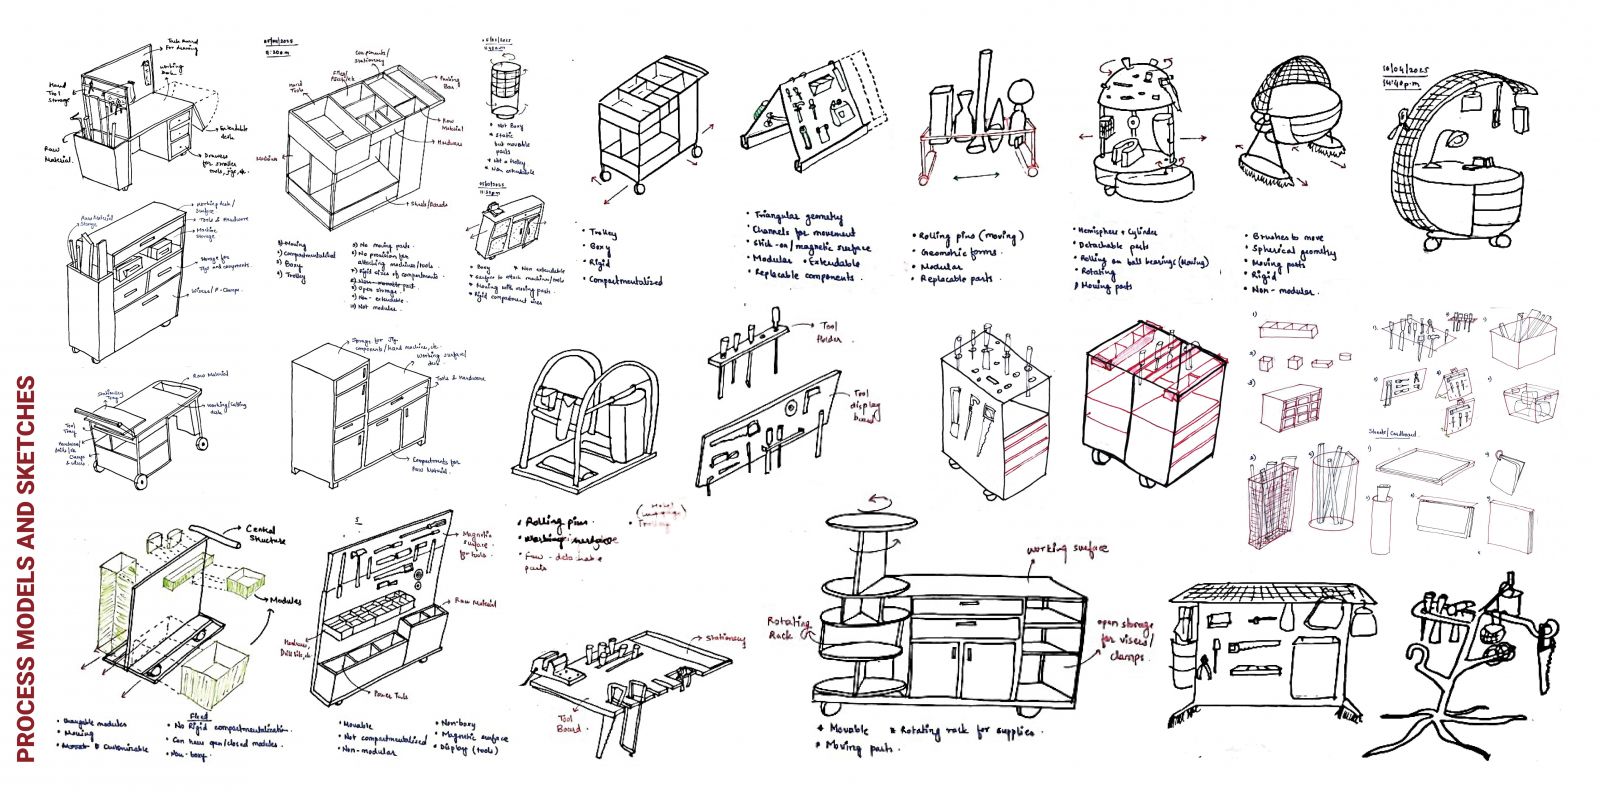 PROCESS MODELS AND SKETCHES
Tack Board
For drawing
Working
Desk
Hand
Tool
Storage
Raw
Material.
Extendable
desk
Drawers
for smaller
tools, jigs, etc.
Components/
Stationery
Hand
Tools
Pushing
Bar
Raw
Material
Hardware
Machines
Sheets/Boards
1) Moving
2) Compartmentalized
3) Boxy
4) Trolley
5) No moving parts
6) No provision for
attaching machines/tools
7) Rigid sizes of compartments
8) Non-movable part
9) Open storage
10) Non-extendable
11) Not modular
Not Boxy
Static
but movable
parts
Not a trolley
Non extendable
Boxy
Non extendable
Surface to attach machines/tools
Moving with moving parts
Rigid compartment sizes
Trolley
Boxy
Rigid
Compartmentalized
Triangular geometry
Channels for movement
Stick-on/magnetic surface
Modular • Extendable
Replaceable components.
Rolling pins (moving)
Geometric forms.
Modular
Replacable parts.
Hemisphere + Cylinder
Detachable parts
Rolling on ball bearings (Moving)
Rotating
Moving parts
Brushes to move
Spherical geometry
Moving parts
Rigid
Non-modular.
16/04/2025
14:40p.m
Raw Material
Storage
Working desk/
Surface
Tools & Hardware
Machine
Storage
Storage for
Jigs and components.
Vises/F-Clamps.
Stationery
Tray
Raw Material
Working/Cutting
desk
Tool
Tray
Storage for Jig
components/hand machine, etc
Working surface/
desk
Tools & Hardware
Compartments for
Raw Material.
Rolling pins.
Working surface
Few-detachable
parts
Tool
Holder
Tool
display
board
Sheets/Cardboard
Central
Structure
Modules
Changeable modules
Moving
Customizable
Fixed
No Rigid compartmentalization.
Can have open/closed modules.
Non-boxy.
5
Magnetic
surface
for tools.
Raw Material
Power Tools
Movable
Not compartmentalised
Non-modular
Non-boxy
Magnetic surface
Display (tools)
Stationery
Tool
Board
Rotating
Rack
working surface
open storage
for vises/
clamps.
Movable
Rotating rack for supplies.
Moving parts.